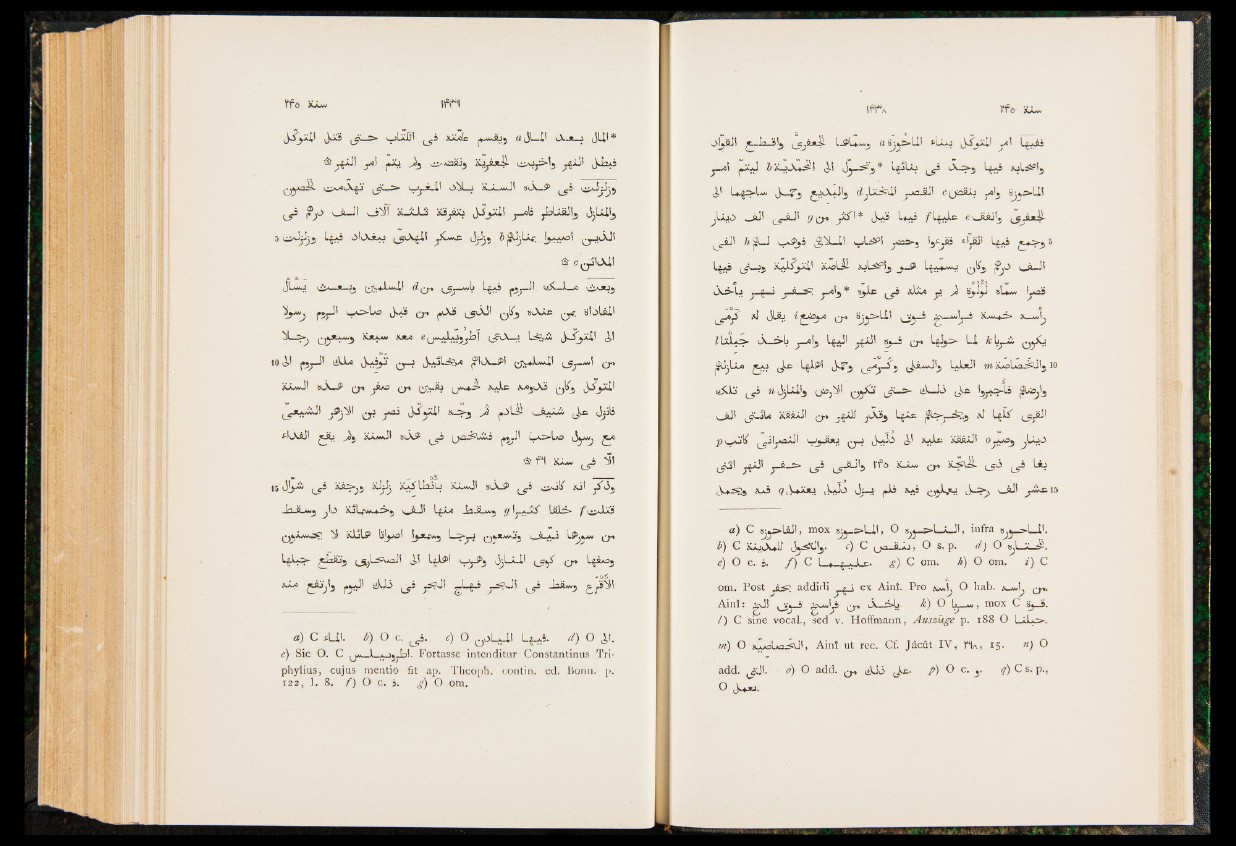 سنة ٢٤٥ ١٤٣٨
ففيها امر المتوكّل ببناء الماحوزة a وسمّاها الجعفرىّ واقطع القوّاد
واصحابه فيها وجدّ فى بنائها *وتحوّل الى المحمّديّة b ليتمّ امر
الماحوزة وامر بنقض c القصر المختار d والبديع وحمل ساجهما الى
الجعفرىّ وانفق e عليها f فيما قيل *اكثر من g الفى الف دينار
5 وجمع فيها القرّاء فقرءوا وحضر اصحاب الملاهى فوهب لهم h الفى
الف درهم وكان يسمّيها هو واصحابه الخاصّة المتوكّليّة وبنى فيها
قصرا سمّاه لؤلؤة لم ير مثله فى علوّه *وامر بحفر نهر يأخذ
رأسه خمسة فراسخ فوق الماحوزة من موضع i يقال له كرمى
يكون شربا k لما حولها من فوهة النهر اليها وامر باخذ جبلتا l
10 والخصاصة m العليا والسفلى وكرمى وحمل اهلها على بيع منازلهم
وارضهم فأجبروا على ذلك حتى تكون الارض والمنازل n فى تلك
القرى كلّها له ويخرجهم عنها وقدّر للنهر من النفقة مائتى الف
دينار وصيّر o النفقة عليه الى دليل بن يعقوب النصرانىّ كاتب p
بغا فى ذى الحجّة من سنة ٢٤٥ والقى فى حفر النهر اثنى
15 عشر الف رجل يعملون فيه فلم يزل دليل يعتمل q فيه ويحمل
a) C الماحوزة, mox الماحوزة, O الماحوزة, infra الماحوزة.
b) C وتحول للمدينة. c) C بنقص, O s. p. d) O
e) O c. ف. f) C عليهما. g) C om. h) O om. i) C
om. Post بحفر addidi نهر ex Ainî. Pro رأسه O hab. من راسه.
Ainî: ياخذ من فراسخ فوق الخ. k) O, mox C فوة.
l) C sine vocal., sed v. Hoffmann, Auszüge p. 188 O حبلتا.
m) O الخصاصيّة, Ainî ut rec. Cf. Jâcût IV, ٢٦٨, 15. n) O
add. التى. o) O add. على ذلك من. p) O c. و. q) C s. p.,
O يعمل.
سنة ٢٤٥ ١٤٣٩
*المال بعد المال a ويقسم عامّته فى الكتّاب حتى قتل المتوكّل
فبطل النهر وأخربت الجعفريّة ونقضت ولم يتمّ امر النهر ۞
وزلزلت فى هذه السنة بلاد المغرب حتى تهدّمت الحصون
والمنازل والقناطر فامر المتوكّل بتفرقة ثلثة آلاف الف درهم فى
5 الذين اصيبوا بمنازلهم b وزلزل عسكر المهدىّ ببغداد فيها وزلزلت
المدائن c ۞
وبعث ملك الروم فيها باسرى من d المسلمين وبعث يسأل
المفاداة بمن عنده وكان الذى قدم من قبل صاحب الروم رسولا
الى المتوكّل شيخا يدعى أطروبيليس e معه سبعة وسبعون رجلا
10 من اسرى المسلمين اهداهم ميخائيل بن توفيل ملك الروم الى
المتوكّل وكان قدومه عليه لخمس بقين من صفر من هذه السنة
فانزل على شنيف الخادم ثم وجّه المتوكّل نصر بن الازهر الشيعىّ
مع رسول صاحب الروم فشخص فى هذه السنة ولم يقع الفداء
الّا فى سنة ٤٦ ۞
15 وذكر انه كانت فى هذه السنة بأنطاكيّة زلزلة ورجفة فى شوّال
قتلت f خلقا كثيرا g وسقط منها الف وخمسمائة دار وسقط
من سورها نيّف وتسعون برجا وسمعوا اصواتا هائلة لا يحسنون
وصفها من كوى المنازل وهرب اهلها الى الصحارى وتقطّع جبلها
الأقرع وسقط فى البحر فهاج البحر فى ذلك اليوم وارتفع منه
a) C الماء. b) O c. فى. c) O فيها المادين. d) O الى.
e) Sic O. C اطروبيليس. Fortasse intenditur Constantinus Tri-
phylius, cujus mentio fit ap. Theoph. contin. ed. Bonn. p.
122, l. 8. f) O c. ف. g) O om.